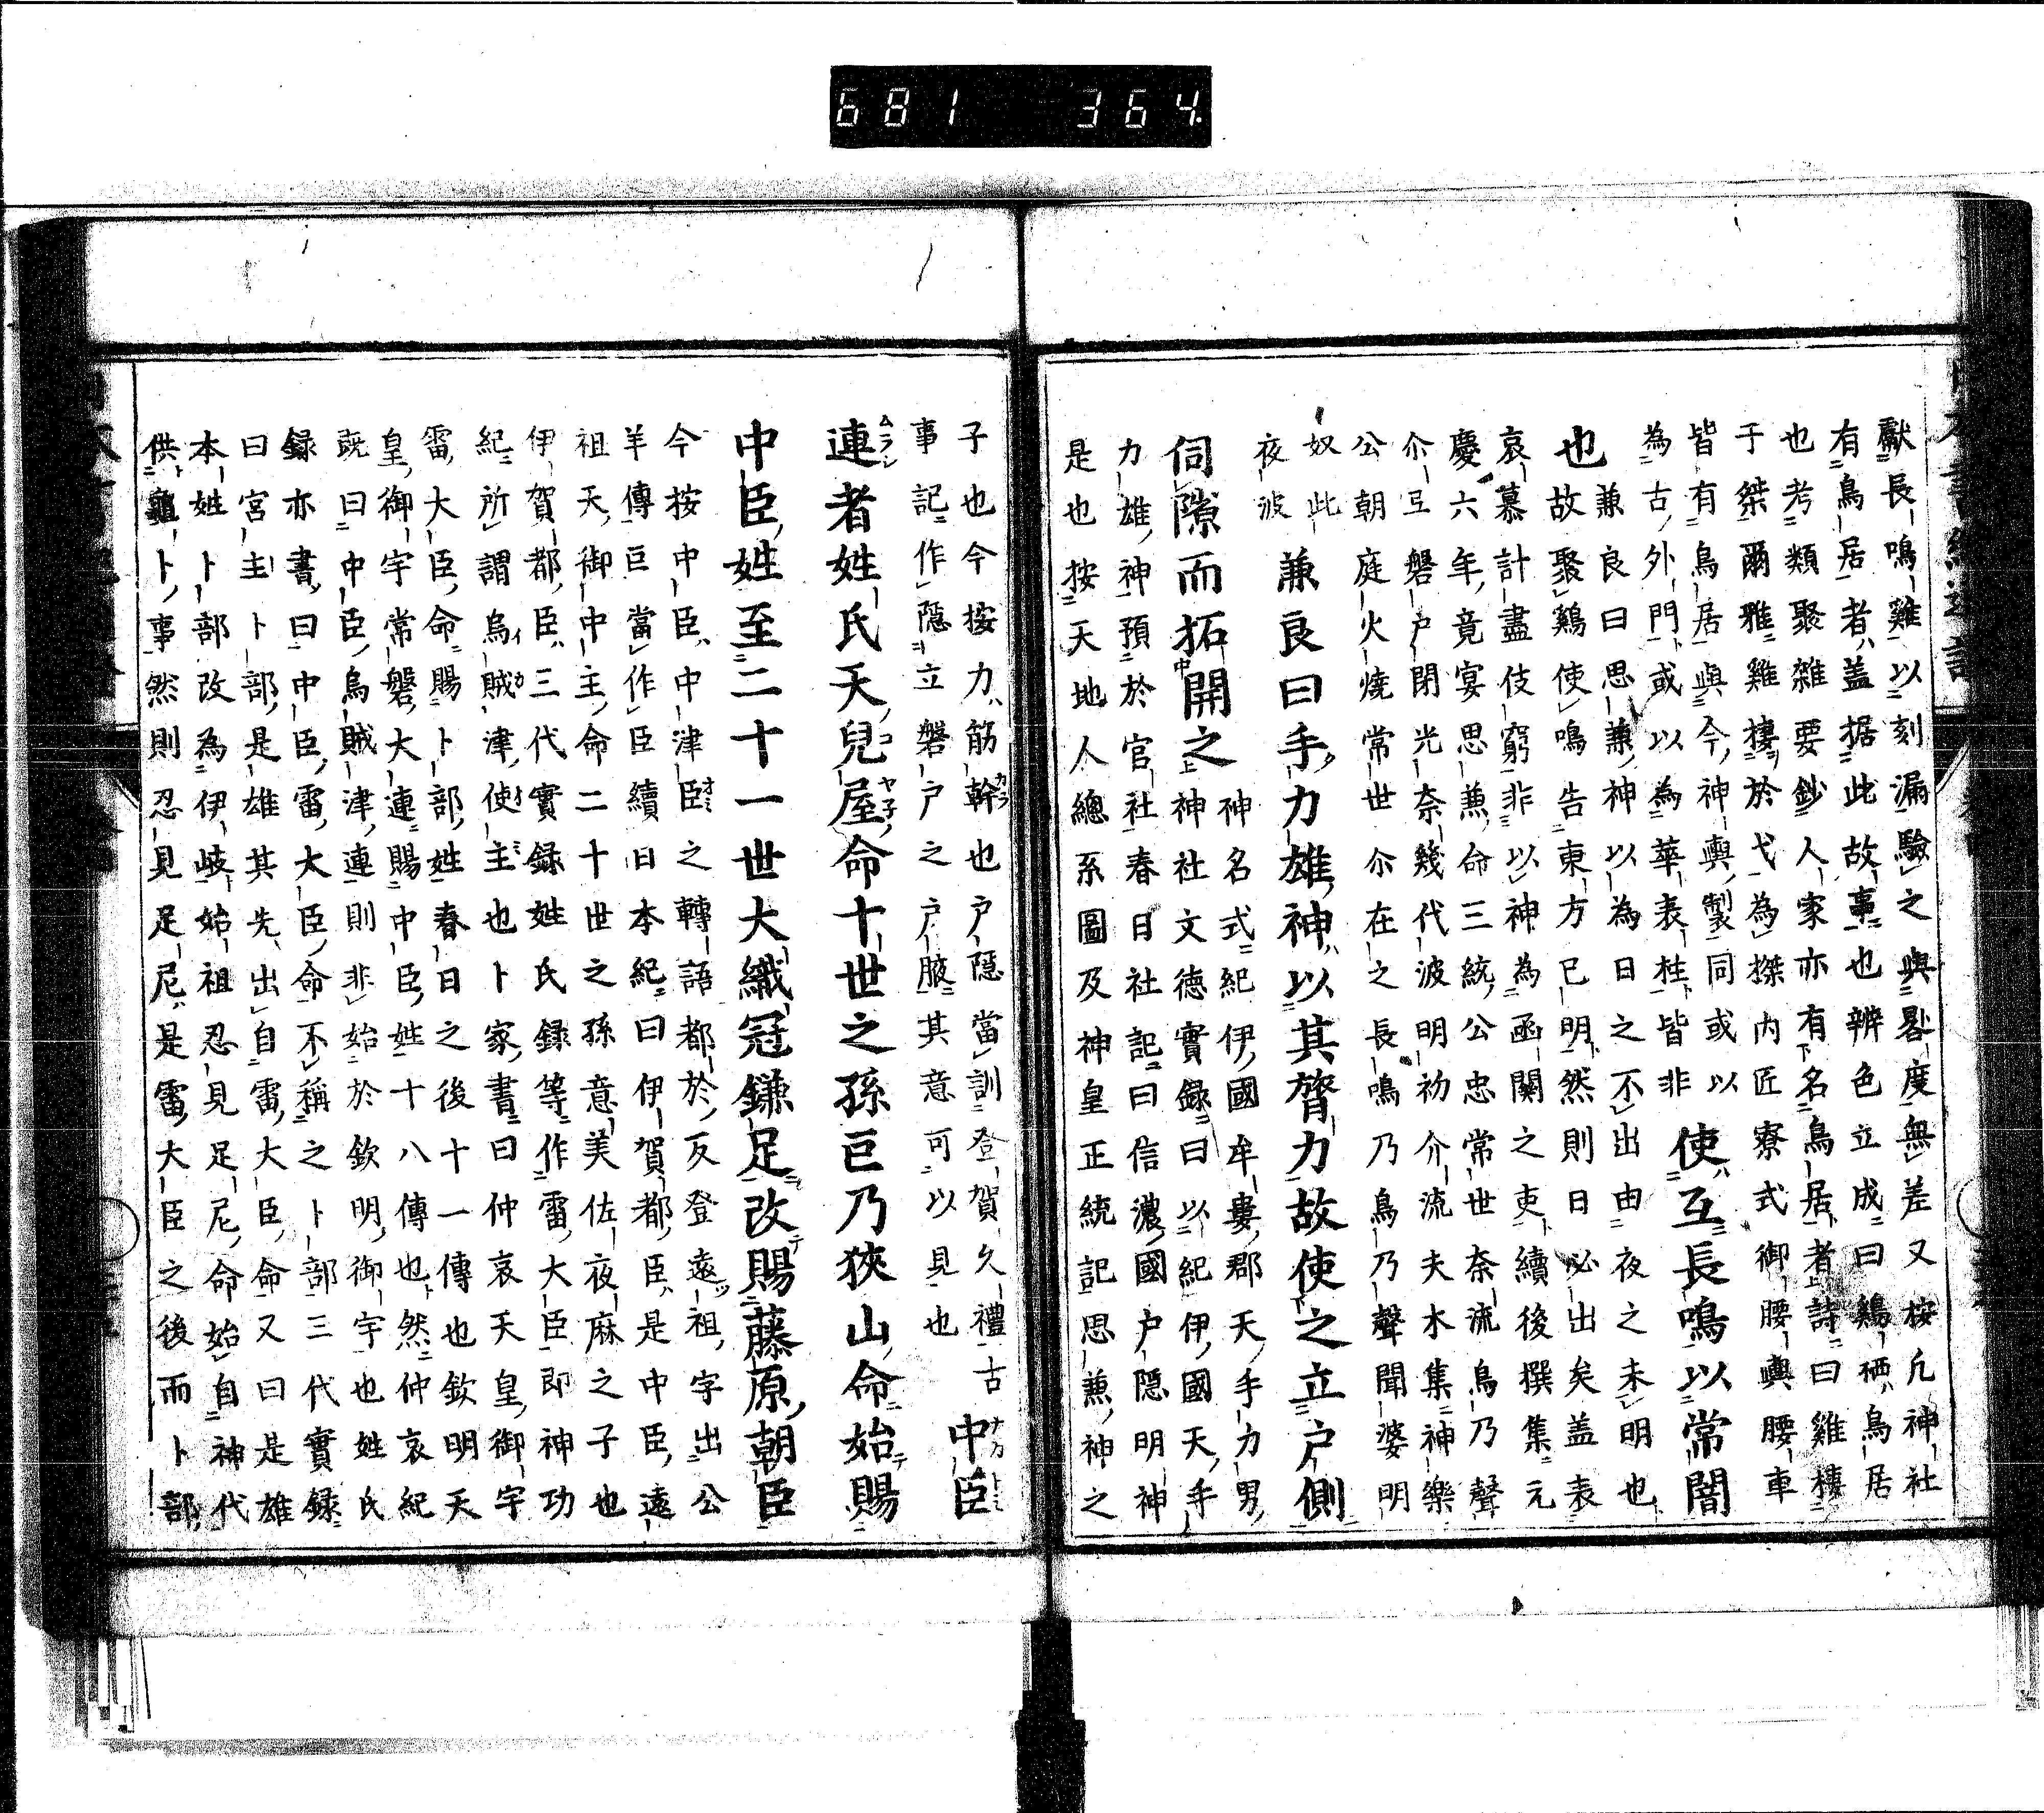 681 364
獻長鳴雞以刻漏驗之與晷度無差又按凡神社
有鳥居者蓋据此故事也辨色立成曰鷄栖鳥居
也考類聚雜要鈔人家亦有名鳥居者詩曰雞棲
于桀爾雅雞棲於弋為榤内匠寮式御腰輿腰車
皆有鳥居與今神輿製同或以
為古外門或以為華表柱皆非
使互長鳴以常闇
也
兼良曰思兼神以為日之不出由夜之未明也
故聚鷄使鳴告東方已明然則日必出矣蓋表
哀慕計盡伎窮非以神為函關之吏續後撰集元
慶六年竟宴思兼命三統公忠常世奈流鳥乃聲
尒亙磐戸閉光奈幾代波明初介流夫木集神樂
公朝庭火燒常世尒在之長鳴乃鳥乃聲聞婆明
奴此
夜波
兼良曰手力雄神以其膂力故使之立戸側
伺隙而拓開之
神名式紀伊國牟婁郡天手力男
神社文德實録曰以紀伊國天手
力雄神預於官社春日社記曰信濃國戸隠明神
是也按天地人總系圖及神皇正統記思兼神之
子也今按力筋幹也戸隠當訓登賀久禮古
事記作隱立磐戸之戸腋其意可以見也
中臣
連者姓氏天兒屋命十世之孫巨乃狹山命始賜
中臣姓至二十一世大織冠鎌足改賜藤原朝臣
今按中臣中津臣之轉語都於反登遠祖字出公
羊傳巨當作臣續日本紀曰伊賀都臣是中臣遠
祖天御中主命二十世之孫意美佐夜麻之子也
伊賀都臣三代實録姓氏録等作雷大臣即神功
紀所謂烏賊津使主也卜家書曰仲哀天皇御宇
雷大臣命賜卜部姓春日之後十一傳也欽明天
皇御宇常磐大連賜中臣姓十八傳也然仲哀紀
既曰中臣烏賊津連則非始於欽明御宇也姓氏
録亦書曰中臣雷大臣命不稱之卜部三代實録
曰宮主卜部是雄其先出自雷大臣命又曰是雄
本姓卜部改為伊岐始祖忍見足尼命始自神代
供龜卜事然則忍見足尼是雷大臣之後而卜部